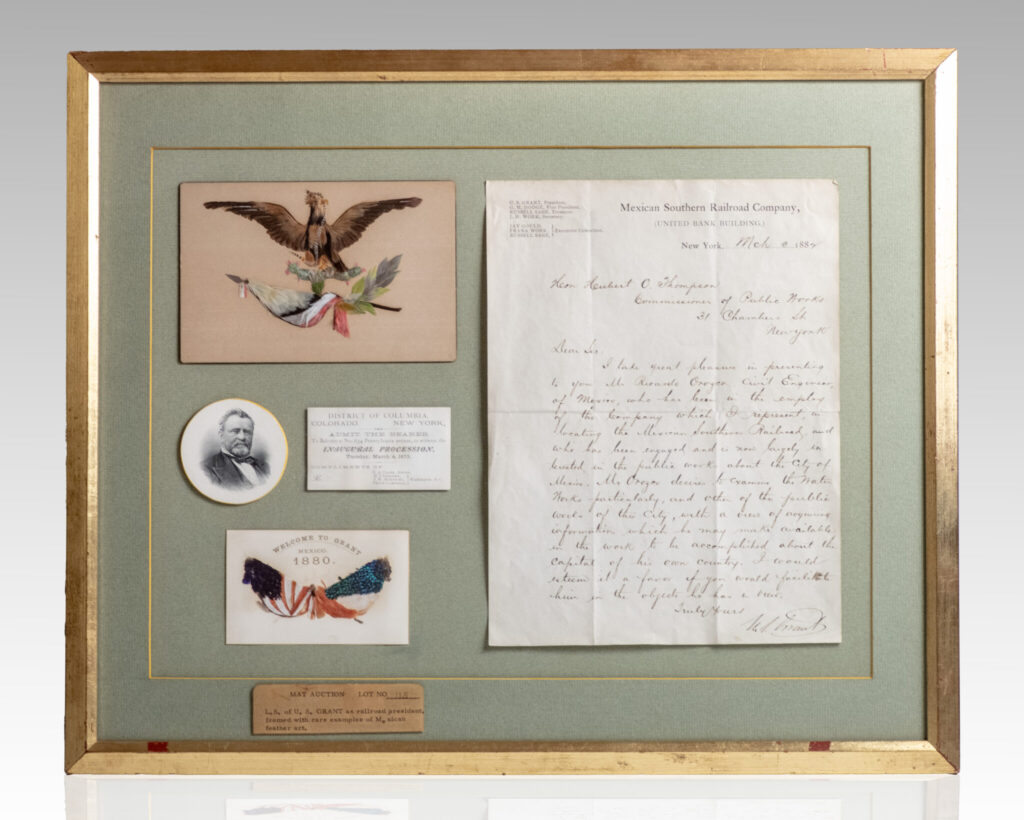 DISTRICT OF COLUMBIA,
COLORADO NEW YORK,
ADMIT THE BEARER
INAUGURAL PROCESSION,
Tuesday, March 4, 1873.
COMPLIMENTS OF
WELCOME TO GRANT
MEXICO.
1880.
MAT AUCTION LOT NO.
L.S. of U. S. GRANT as railroad president,
framed with rare examples of Mexican
feather art.
U. S. GRANT, President,
G. M. DODGE, Vice President,
RUSSELL SAGE, Treasurer
JAY GOULD,
FRANK WORK,
RUSSELL SAGE,
Executive Committee.
Mexican Southern Railroad Company,
(UNITED BANK BUILDING.)
New York, Mch 188
Hon Hubert O. Thompson
Commissioner of Public Works
31 Chambers St
New York
Dear Sir:
I take great pleasure in presenting
to you Mr Ricardo Orozco, Civil Engineer,
of Mexico, who has been in the employ
of the Company which I represent, in
locating the Mexican Southern Railroad, and
who has been engaged and is now largely in-
terested in the public works about the City of
Mexico. Mr Orozco desires to examine the Water
Works particularly, and other of the public
works of this City, with a view of acquiring
information which he may make available
in the work to be accomplished about the
capital of his own country. I would
esteem it a favor if you would facilitate
him in the objects he has in view.
Truly Yours
U. S. Grant